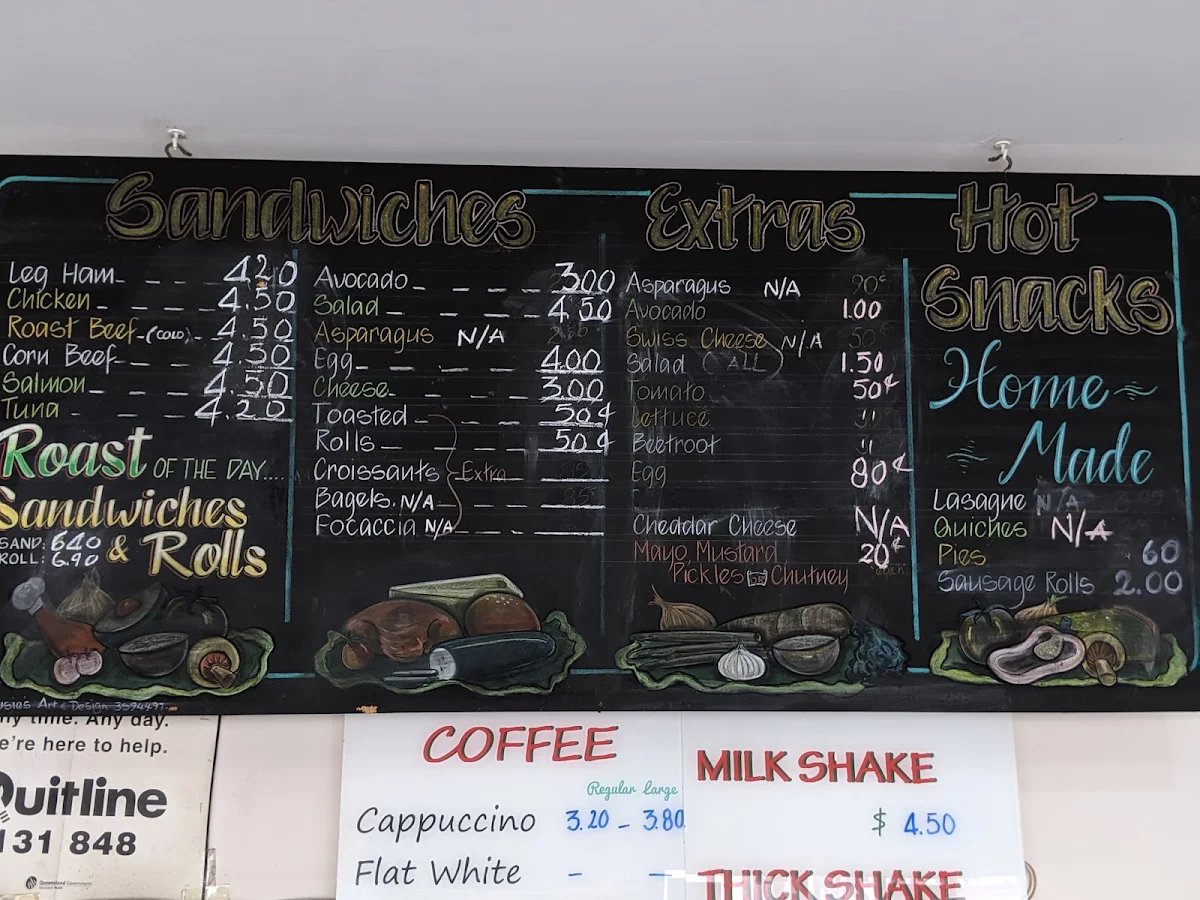 Sandwiches
Leg Ham 4.20
Chicken 4.50
Roast Beef (COLD) 4.50
Corn Beef 4.50
Salmon 4.50
Tuna 4.20
Roast OF THE DAY....
Sandwiches
& Rolls
SAND: 6.40
ROLL: 6.90
Avocado 3.00
Salad 4.50
Asparagus N/A
Egg 4.00
Cheese 3.00
Toasted 50¢
Rolls 50¢
Croissants Extra
Bagels N/A
Focaccia N/A
Extras
Asparagus N/A 90¢
Avocado 1.00
Swiss Cheese N/A 50
Salad (ALL) 1.50
Tomato 50¢
Lettuce "
Beetroot "
Egg 80¢
Cheddar Cheese N/A
Mayo, Mustard, 20¢
Pickles or Chutney
Hot
Snacks
Home
Made
Lasagne N/A
Quiches N/A
Pies 60
Sausage Rolls 2.00
Art & Design 3594497
ny time. Any day.
e're here to help.
Quitline
131 848
Queensland Government
COFFEE
Regular Large
Cappuccino 3.20 - 3.80
Flat White - -
MILK SHAKE
$ 4.50
THICK SHAKE